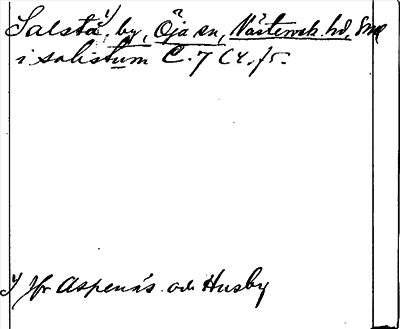 Salsta 1) by, Öja sn, Västerrek. hd, Sml
i salistum C. 7 C4. fr.
1) Jfr Aspenäs och Husby